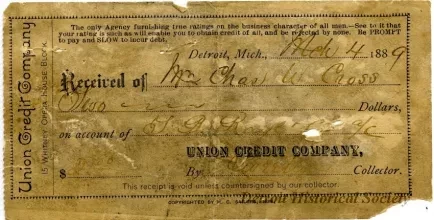 The only Agency furnishing true ratings on the business character of all men.—See to it that
your rating is such as will enable you to obtain credit of all, and be rejected by none. Be PROMPT
to pay and SLOW to incur debt.
Union Credit Company,
15 Whitney Opera House Block.
Detroit, Mich., Mch 4 1889
Received of Chas W. Cross
Two Dollars,
on account of
UNION CREDIT COMPANY,
$ By Collector.
This receipt is void unless countersigned by our collector
Detroit Historical Society
COPYRIGHTED BY